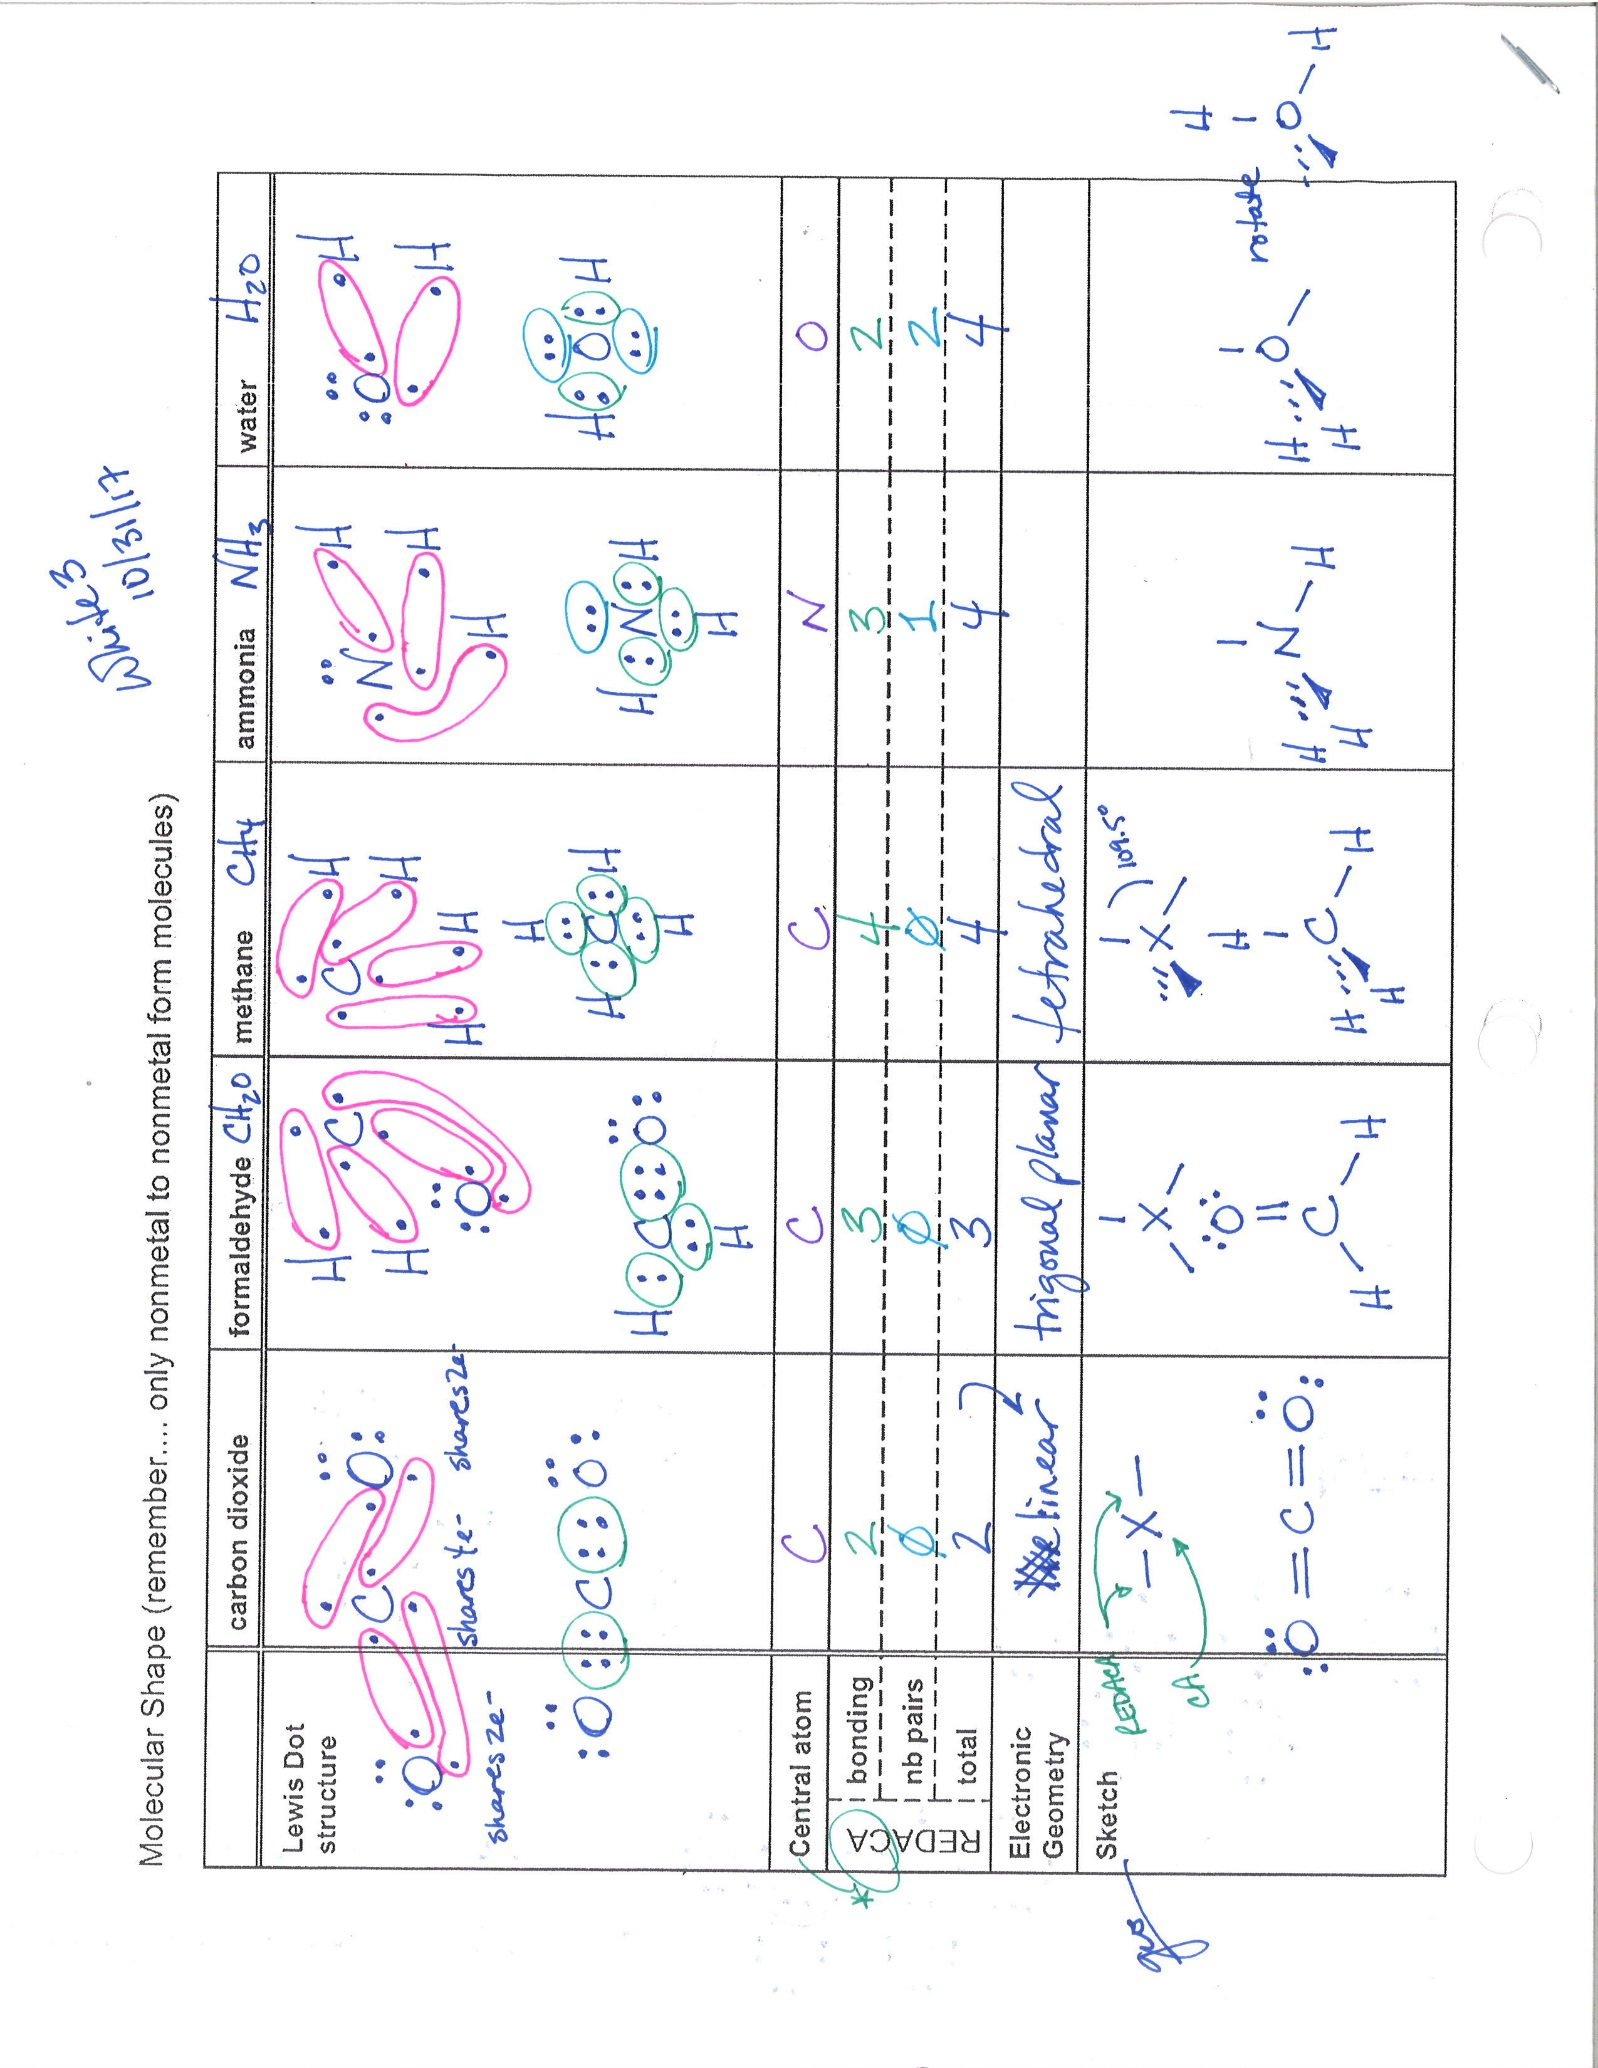 10/31/17
Molecular Shape (remember.... only nonmetal to nonmetal form molecules)
carbon dioxide
formaldehyde CH2O
methane CH4
ammonia NH3
water H2O
Lewis Dot
structure
O C O
shares 2e-
shares 4e-
shares 2e-
O C O
H C
H
O
H C O
H
C H
H
H
H
H
H C H
H
N H
H
H
H N H
H
O H
H
H O H
Central atom
C
C
C
N
O
REDACA
bonding
2
3
4
3
2
nb pairs
Ø
Ø
Ø
1
2
total
2
3
4
4
4
*
Electronic
Geometry
linear
trigonal planar
tetrahedral
Sketch
REDACA
CA
– X –
O = C = O
X
O
=
C
H H
X
109.5°
H
C
H H
H
N
H H
H
O
H
H
rotate
H
O
H